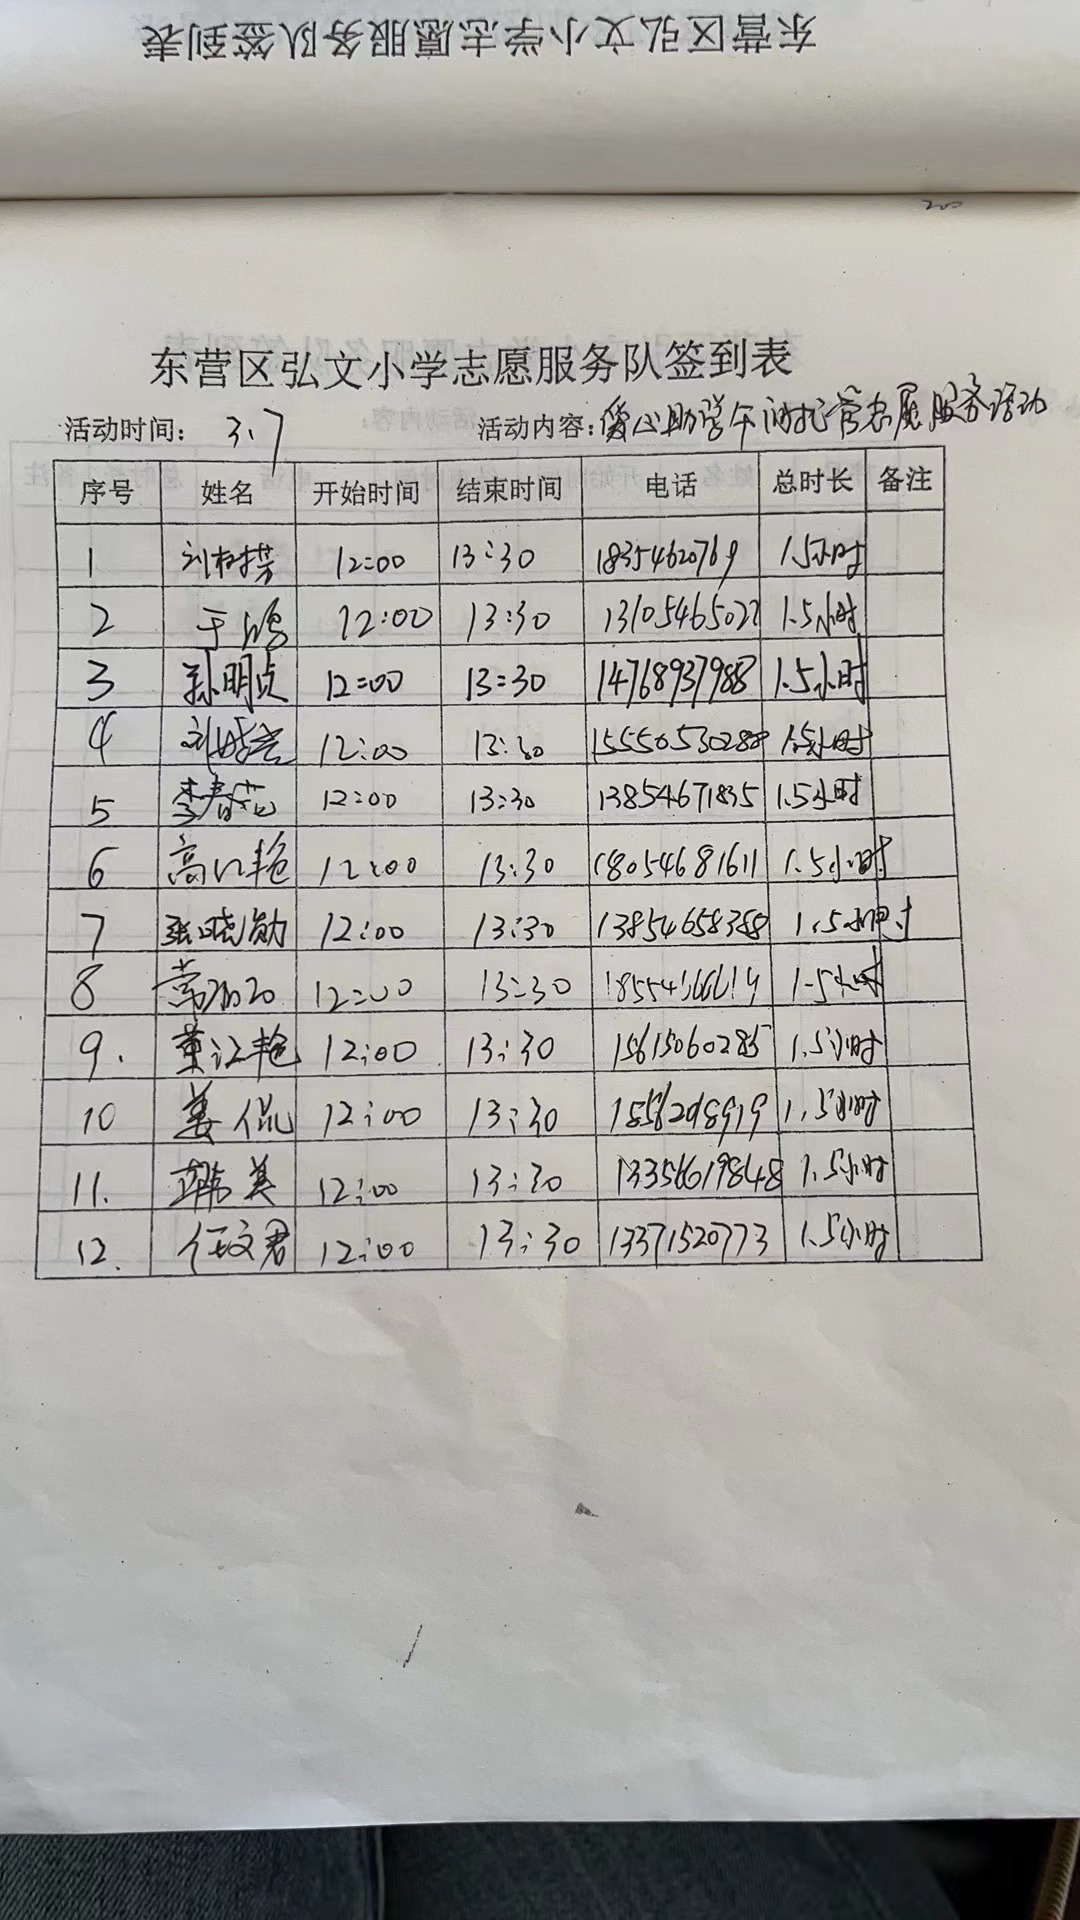 东营区弘文小学志愿服务队签到表
东营区弘文小学志愿服务队签到表
活动时间: 3.7 活动内容:爱心助学午间托管志愿服务活动
序号 姓名 开始时间 结束时间 电话 总时长 备注
1 刘树芳 12:00 13:30 18354620769 1.5小时
2 于鸿 12:00 13:30 13105465022 1.5小时
3 孙明贞 12:00 13:30 14768937988 1.5小时
4 12:00 13:30 15550530288 1.5小时
5 李春花 12:00 13:30 13854671835 1.5小时
6 高江艳 12:00 13:30 18054681611 1.5小时
7 张晓勋 12:00 13:30 13854658388 1.5小时
8 12:00 13:30 1.5小时
9. 董江艳 12:00 13:30 15615060285 1.5小时
10 姜侃 12:00 13:30 1.5小时
11. 韩美 12:00 13:30 13356619848 1.5小时
12. 任文君 12:00 13:30 13371520773 1.5小时